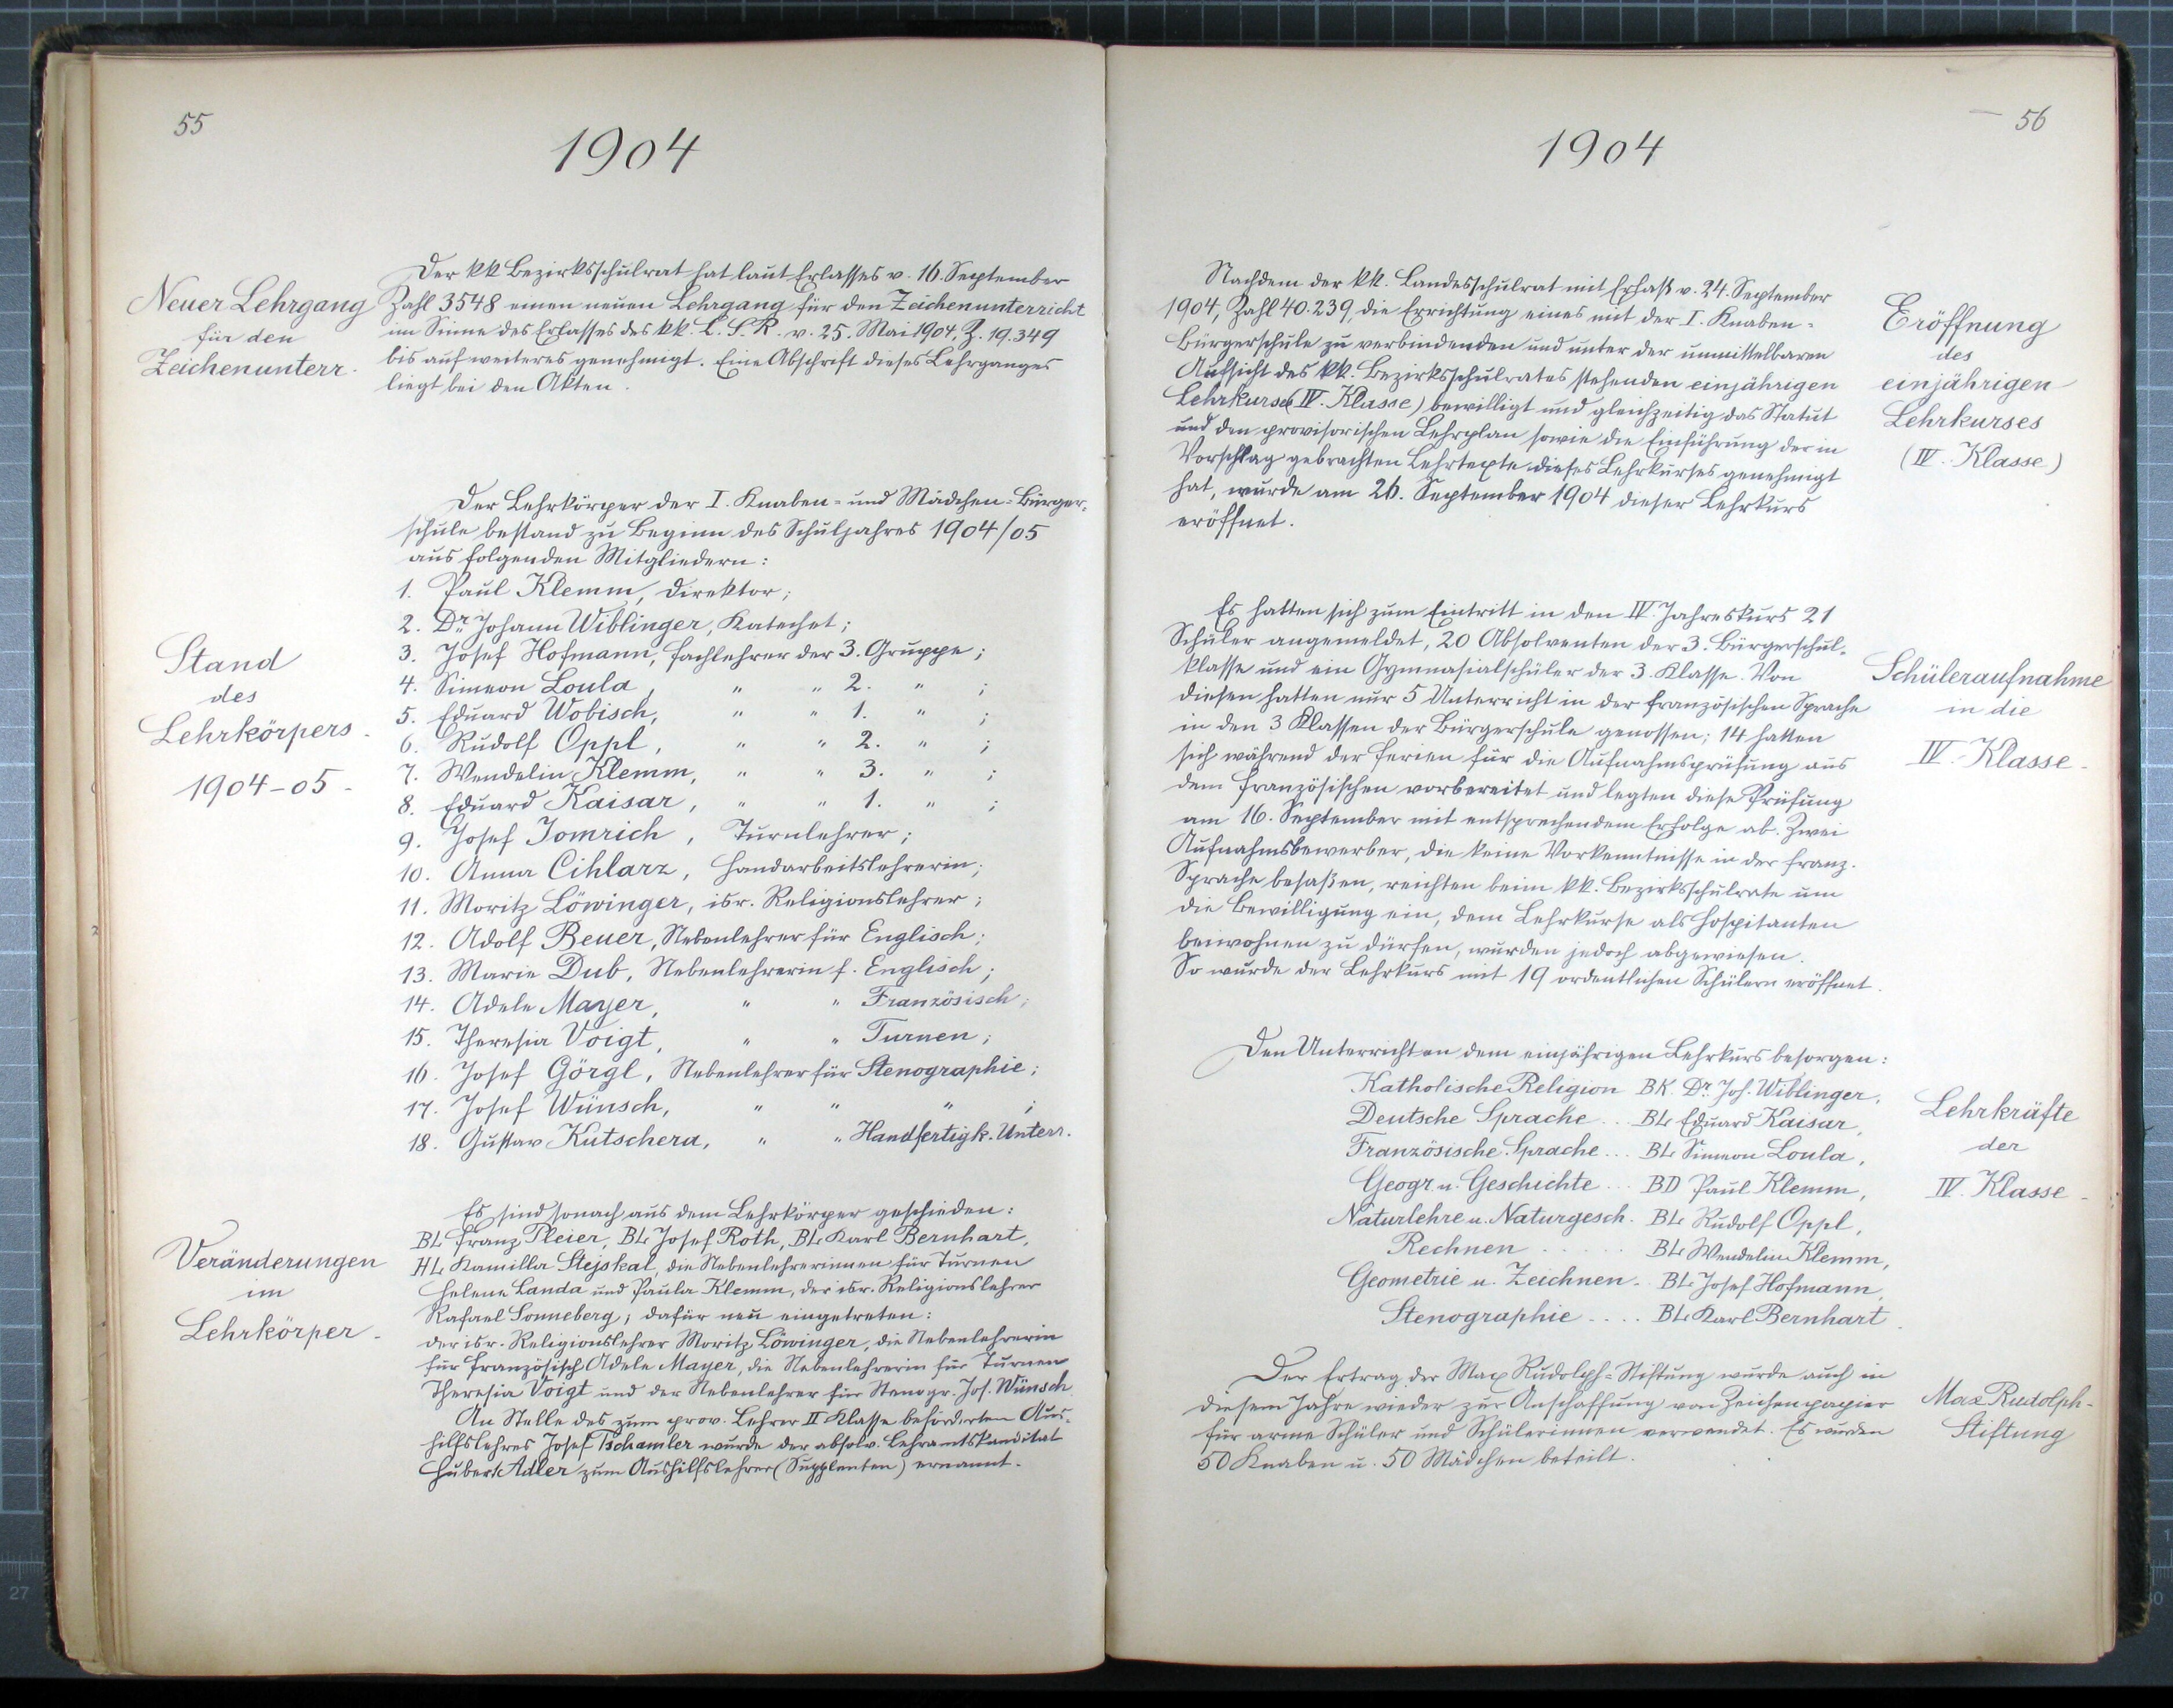 55
1904
Neuer Lehrgang
für den
Zeichenunterr.
Der kk Bezirksschulrat hat laut Erlasses v. 16. September
Zahl 3548 einen neuen Lehrgang für den Zeichenunterricht
im Sinne des Erlasses des kk. L. S. R. v. 25. Mai 1904, Z. 19.349
bis auf weiteres genehmigt. Eine Abschrift dieses Lehrganges
liegt bei den Akten.
Stand
des
Lehrkörpers
1904-05
Der Lehrkörper der I. Knaben- und Mädchen-Bürger-
schule bestand zu Beginn des Schuljahres 1904/05
aus folgenden Mitgliedern:
1. Paul Klemm, Direktor;
2. Dr. Johann Wiblinger, Katechet;
3. Josef Hofmann, Fachlehrer der 3. Gruppe;
4. Simeon Loula, " " 2. " ;
5. Eduard Wobisch, " " 1. " ;
6. Rudolf Oppl, " " 2. " ;
7. Wendelin Klemm, " " 3. " ;
8. Eduard Kaisar, " " 1. " ;
9. Josef Jomrich, Turnlehrer;
10. Anna Cihlarz, Handarbeitslehrerin;
11. Moritz Löwinger, isr. Religionslehrer;
12. Adolf Beuer, Nebenlehrer für Englisch;
13. Marie Dub, Nebenlehrerin f. Englisch;
14. Adele Mayer, " " Französisch;
15. Theresia Voigt, " " Turnen;
16. Josef Görgl, Nebenlehrer für Stenographie;
17. Josef Wünsch, " " " ;
18. Gustav Kutschera, " " Handfertigk. Unterr.
Veränderungen
im
Lehrkörper
Es sind sonach aus dem Lehrkörper geschieden:
BL Franz Pleier, BL Josef Roth, BL Karl Bernhart,
HL Kamilla Stejskal, die Nebenlehrerinnen für Turnen
Helene Landa und Paula Klemm, der isr. Religionslehrer
Rafael Sonneberg; dafür neu eingetreten:
der isr. Religionslehrer Moritz Löwinger, die Nebenlehrerin
für Französisch Adele Mayer, die Nebenlehrerin für Turnen
Theresia Voigt und der Nebenlehrer für Stenogr. Jos. Wünsch.
An Stelle des zum prov. Lehrer II Klasse beförderten Aus-
hilfslehres Josef Tschamler wurde der absolv. Lehramtskanditat
Hubert Adler zum Aushilfslehrer (Supplenten) ernannt.
56
1904
Nachdem der kk. Landesschulrat mit Erlaß v. 24. September
1904, Zahl 40.239, die Errichtung eines mit der I. Knaben-
Bürgerschule zu verbindenden und unter der unmittelbaren
Aufsicht des kk. Bezirksschulrates stehenden einjährigen
Lehrkurses (IV. Klasse) bewilligt und gleichzeitig das Statut
und den provisorischen Lehrplan sowie die Einführung der in
Vorschlag gebrachten Lehrtexte dieses Lehrkurses genehmigt
hat, wurde am 26. September 1904 dieser Lehrkurs
eröffnet.
Eröffnung
des
einjährigen
Lehrkurses
(IV. Klasse)
Es hatten sich zum Eintritt in den IV. Jahreskurs 21
Schüler angemeldet, 20 Absolventen der 3. Bürgerschul-
klasse und ein Gymnasialschüler der 3. Klasse. Von
diesen hatten nur 5 Unterricht in der französischen Sprache
in den 3 Klassen der Bürgerschule genossen; 14 hatten
sich während der Ferien für die Aufnahmsprüfung aus
dem Französischen vorbereitet und legten diese Prüfung
am 16. September mit entsprechendem Erfolge ab. Zwei
Aufnahmsbewerber, die keine Vorkenntnisse in der franz.
Sprache besaßen, reichten beim kk. Bezirksschulrate um
die Bewilligung ein, dem Lehrkurse als Hospitanten
beiwohnen zu dürfen, wurden jedoch abgewiesen.
So wurde der Lehrkurs mit 19 ordentlichen Schülern eröffnet.
Schüleraufnahme
in die
IV. Klasse
Den Unterricht an dem einjährigen Lehrkurs besorgen:
Katholische Religion BK. Dr. Joh. Wiblinger,
Deutsche Sprache .. BL Eduard Kaisar,
Französische Sprache ... BL Simeon Loula,
Geogr. u. Geschichte .. BD Paul Klemm,
Naturlehre u. Naturgesch. BL Rudolf Oppl,
Rechnen ..... BL Wendelin Klemm,
Geometrie u. Zeichnen. BL Josef Hofmann,
Stenographie .... BL Karl Bernhart.
Lehrkräfte
der
IV. Klasse
Der Ertrag der Max Rudolph-Stiftung wurde auch in
diesem Jahre wieder zur Anschaffung von Zeichenpapier
für arme Schüler und Schülerinnen verwendet. Es wurden
50 Knaben u. 50 Mädchen beteilt.
Max Rudolph-
Stiftung
27